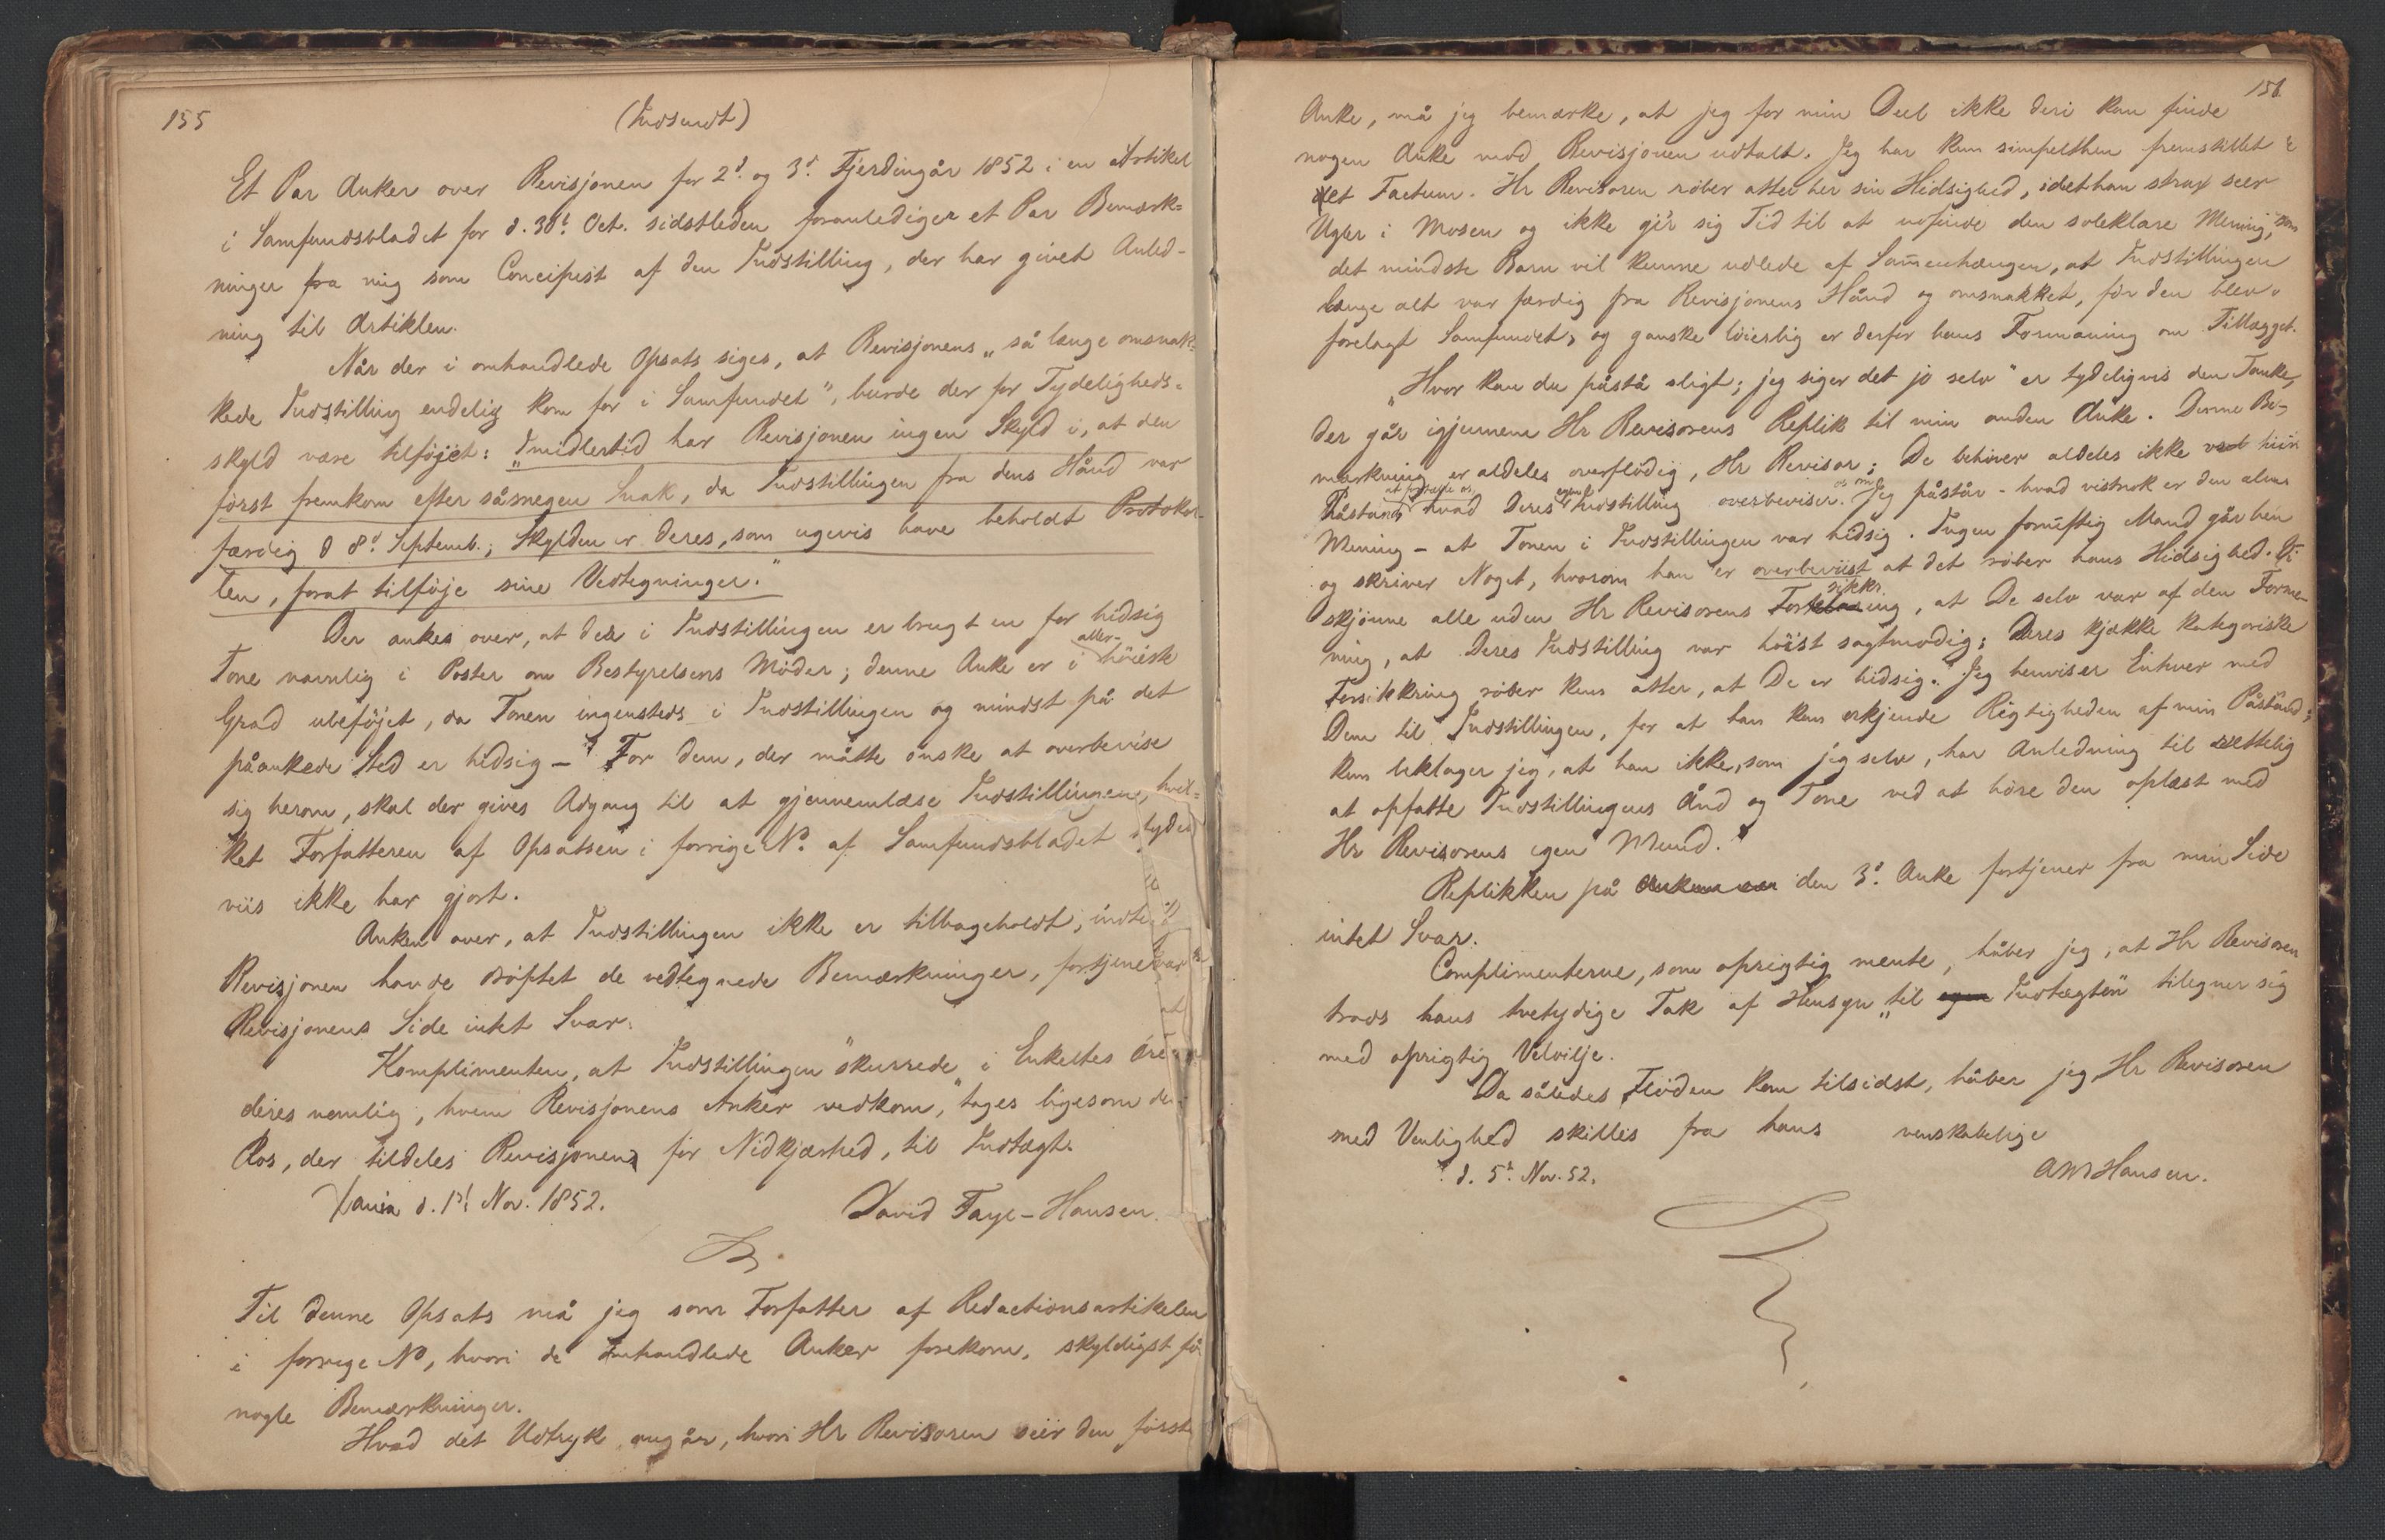 155
(Indsendt)
Et Par Anker over Revisjonen for 2d. og 3d. Fjerdingår 1852 i en Artikel
i Samfundsbladet for d. 30t. Oct. sidstleden foranlediger et Par Bemærk=
ninger fra mig som Concipist af den Indstilling, der har givet Anled-
ning til Artiklen.
Når der i omhandlede Opsats siges, at Revisjonens „så længe omsnak=
kede Indstilling endelig kom for i Samfundet", burde der for Tydeligheds-
skyld være tilföjet: „Imidlertid har Revisjonen ingen Skyld i, at den
först fremkom efter såmegen Snak, da Indstillingen fra dens Hånd var
færdig d 8d. Septemb.; Skylden er deres, som ugevis have beholdt Protokol-
len, forat tilföje sine Vedtegninger."
Der ankes over, at der i Indstillingen er brugt en for hidsig
Tone navnlig i Poster om Bestyrelsens Möder; denne Anke er i aller- höieste
Grad ubeföjet, da Tonen ingensteds i Indstillingen og mindst på det
påankede Sted er hidsig – For dem, der måtte önske at overbevise
sig herom, skal der gives Adgang til at gjennemlæse Indstillingen, hvil=
ket Forfatteren af Opsatsen i forrige No. af Samfundsbladet tydelig
viis ikke har gjort.
Anken over, at Indstillingen ikke er tilbageholdt, indtil
Revisjonen havde dröftet de vedtegnede Bemærkninger, fortjener
Revisjonens Side intet Svar.
Komplimenten, at Indstillingen "skurrede i Enkeltes Öre
deres nemlig, hvem Revisjonens Anker vedkom," tages ligesom den
Ros, der tildeles Revisjonen for Nidkjærhed, til Indtægt.
Xania d. 1st Nov. 1852.
David Faye-Hansen.
Til denne Opsats må jeg som Forfatter af Redactionsartikelen
i forrige No, hvori de omhandlede Anker forekom, skyldigst
nogle Bemærkninger.
Hvad det Udtryk angår, hvori Hr Revisoren seer den förste
156
Anke, må jeg bemærke, at jeg for min Deel ikke deri kan finde
nogen Anke mod Revisjonen udtalt. Jeg har kun simpelthen fremstillet
et Factum. Hr Revisoren röber atter her sin Hidsighed, idet han strax seer
Ugler i Mosen og ikke gi'r sig Tid til at udfinde den soleklare Mening, som
det mindste Barn vil kunne udlede af Sammenhængen, at Indstillingen
længe alt var færdig fra Revisjonens Hånd og omsnakket, för den blev
forelagt Samfundet, og ganske löierlig er derfor hans Formaning om Tillægget.
„Hvor kan du påstå sligt; jeg siger det jo selv" er tydeligvis den Tanke,
der går igjennem Hr Revisorens Replik til min anden Anke. Denne Be-
mærkning er aldeles overflödig, Hr Revisor; De behöver aldeles ikke ved hiin
Påstand at fortælle os, hvad Deres egen Indstilling overbeviser os om. Jeg påstår – hvad vistnok er den alm.
Mening – at Tonen i Indstillingen var hidsig. Ingen fornuftig Mand går hen
og skriver Noget, hvorom han er overbeviist at det röber hans Hidsighed. Vi
skjönne alle uden Hr Revisorens Forsikkring, at De selv var af den Forme-
ning, at Deres Indstilling var höist sagtmodig; Deres kjække kategoriske
Forsikkring röber kun atter, at De er hidsig. Jeg henviser Enhver med
Dem til Indstillingen, for at han kan erkjende Rigtigheden af min Påstand;
kun beklager jeg, at han ikke, som jeg selv, har Anledning til rettelig
at opfatte Indstillingens Ånd og Tone ved at höre den oplæst med
Hr Revisorens egen Mund.
Replikken på den 3d. Anke fortjener fra min Side
intet Svar.
Complimenterne, som oprigtig mente, håber jeg, at Hr Revisoren
trods hans tvetydige Tak af Hensyn „til Indtægten" tilegner sig
med oprigtig Velvilje.
Da således Flöden kom tilsidst, håber jeg, Hr Revisoren
med Venlighed skilles fra hans venskabelige
d. 5t. Nov. 52.
AMHansen.